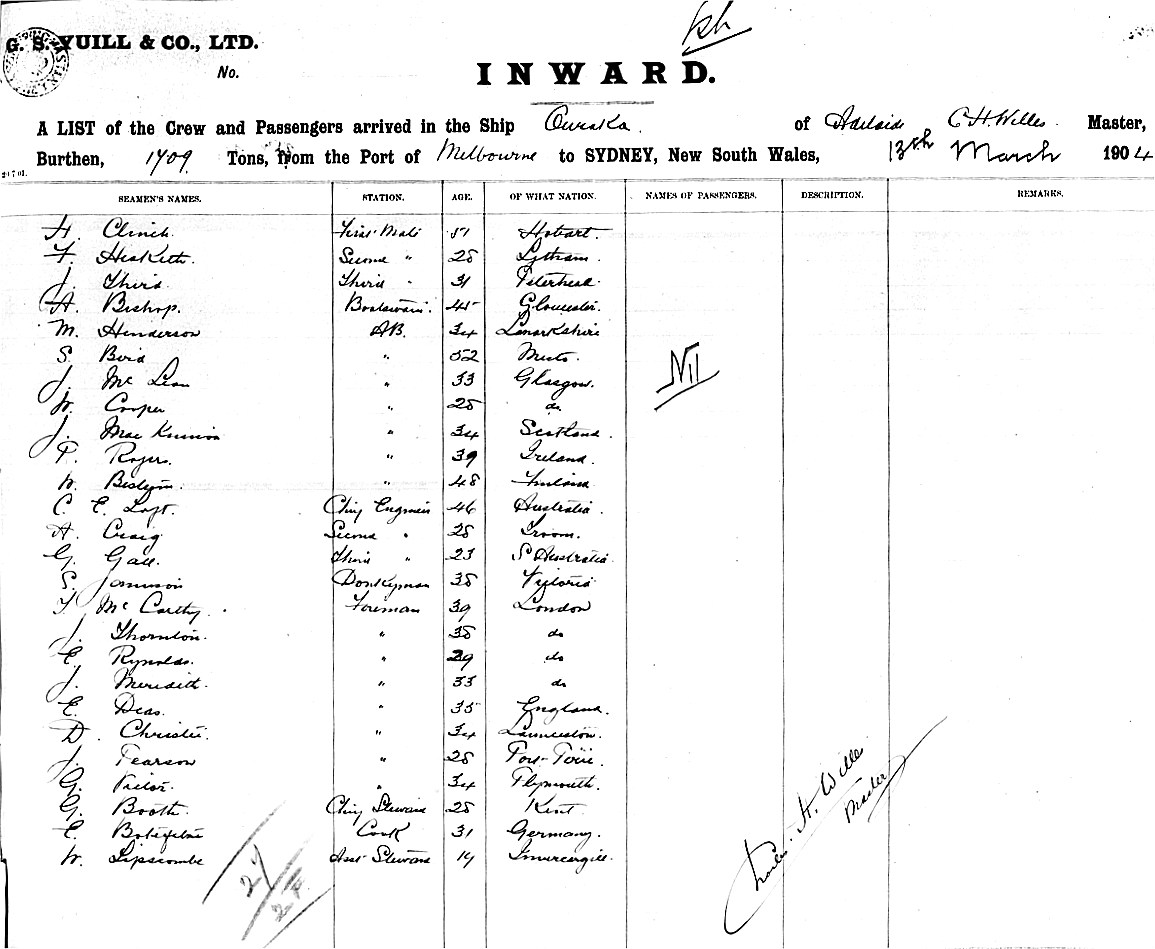 G. S. YUILL & CO., LTD.
No.
INWARD.
A LIST of the Crew and Passengers arrived in the Ship Ouraka of Adelaide C H Wills Master,
Burthen, 1709 Tons, from the Port of Melbourne to SYDNEY, New South Wales, 13th March 1904
SEAMEN'S NAMES. STATION. AGE. OF WHAT NATION. NAMES OF PASSENGERS. DESCRIPTION. REMARKS.
H. Clinch. First Mate 51 Hobart.
F. Hesketh. Second " 28 Lytham.
J. Third Third " 31 Peterhead
A. Bishop. Boatswain. 45 Gloucester.
M. Henderson AB. 34 Lanarkshire
S. Bird " 52
J. Mc Lean " 33 Glasgow.
W. Cooper " 28 do
J. Mac Kinnon " 34 Scotland.
P. Rogers. " 39 Ireland.
W. " 48 Finland
C. E. Loft. Chief Engineer 46 Australia.
A. Craig Second " 28 Troon.
G. Gall Third " 23 S Australia
S. Jamison Donkeyman 38 Victoria
T. Mc Carthy. Fireman 39 London
J. Thornton. " 38 do
E. Rynolds. " 29 do
J. Meredith. " 33 do
E. Deas. " 35 England.
D. Christie. " 34 Launceston.
J. Pearson " 28
G. " 34 Plymouth.
G. Booth. Chief Steward 28 Kent
E. Cook 31 Germany.
W. Lipscombe Asst Steward 19 Invercargill.
Nil
27
27
Charles. H. Wills
Master